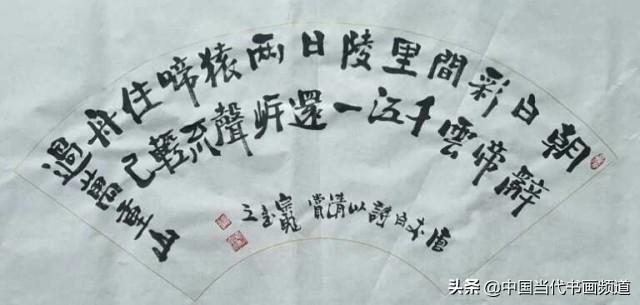 朝辭白帝彩雲間千里江陵一日還两岍猿聲啼不住輕舟已過萬重山
唐李白詩以清賞
头条 @中国当代书画频道